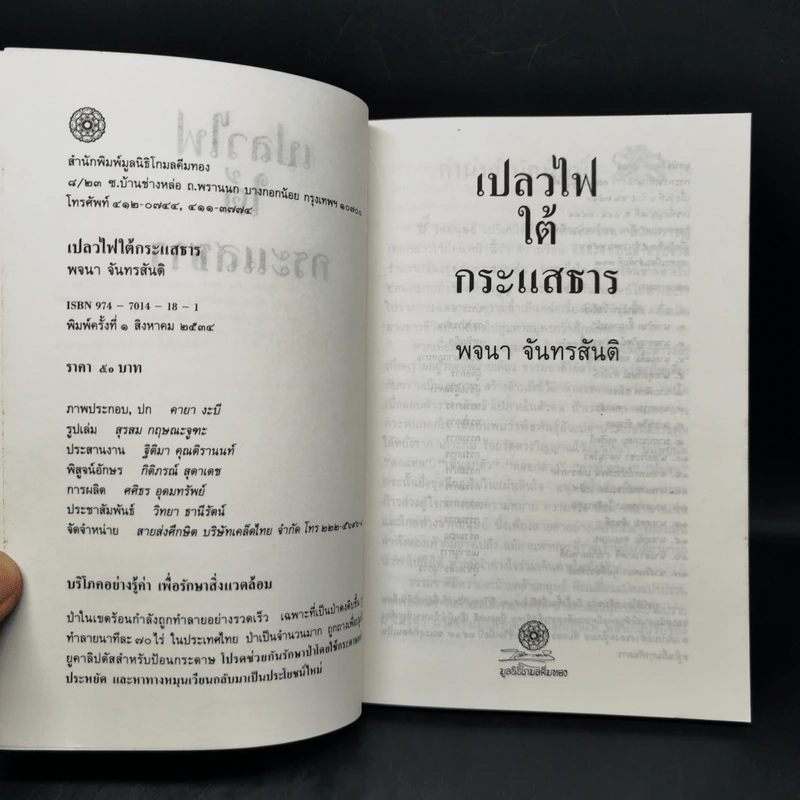 สำนักพิมพ์มูลนิธิโกมลคีมทอง
๘/๒๓ ซ.บ้านช่างหล่อ ถ.พรานนก บางกอกน้อย กรุงเทพฯ ๑๐๗๐๐
โทรศัพท์ ๔๑๒-๐๗๔๔, ๔๑๑-๓๗๗๔
เปลวไฟใต้กระแสธาร
พจนา จันทรสันติ
ISBN 974 – 7014 – 18 – 1
พิมพ์ครั้งที่ ๑ สิงหาคม ๒๕๓๔
ราคา ๕๑ บาท
ภาพประกอบ, ปก คายา งะบี
รูปเล่ม สุรสม กฤษณะจูฑะ
ประสานงาน ฐิติมา คุณติรานนท์
พิสูจน์อักษร กิติภรณ์ สุดาเดช
การผลิต ศศิธร อุดมทรัพย์
ประชาสัมพันธ์ วิทยา ธานีรัตน์
จัดจำหน่าย สายส่งศึกษิต บริษัทเคล็ดไทย จำกัด โทร
บริโภคอย่างรู้ค่า เพื่อรักษาสิ่งแวดล้อม
ป่าในเขตร้อนกำลังถูกทำลายอย่างรวดเร็ว เฉพาะที่เป็นป่าดงดิบชื้น
ทำลายนาทีละ ๗๐ ไร่ ในประเทศไทย ป่าเป็นจำนวนมาก
ยูคาลิปตัสสำหรับป้อนกระดาษ โปรดช่วยกันรักษาป่าโดยใช้
ประหยัด และหาทางหมุนเวียนกลับมาเป็นประโยชน์ใหม่
เปลวไฟ
ใต้
กระแสธาร
พจนา จันทรสันติ
มูลนิธิโกมลคีมทอง